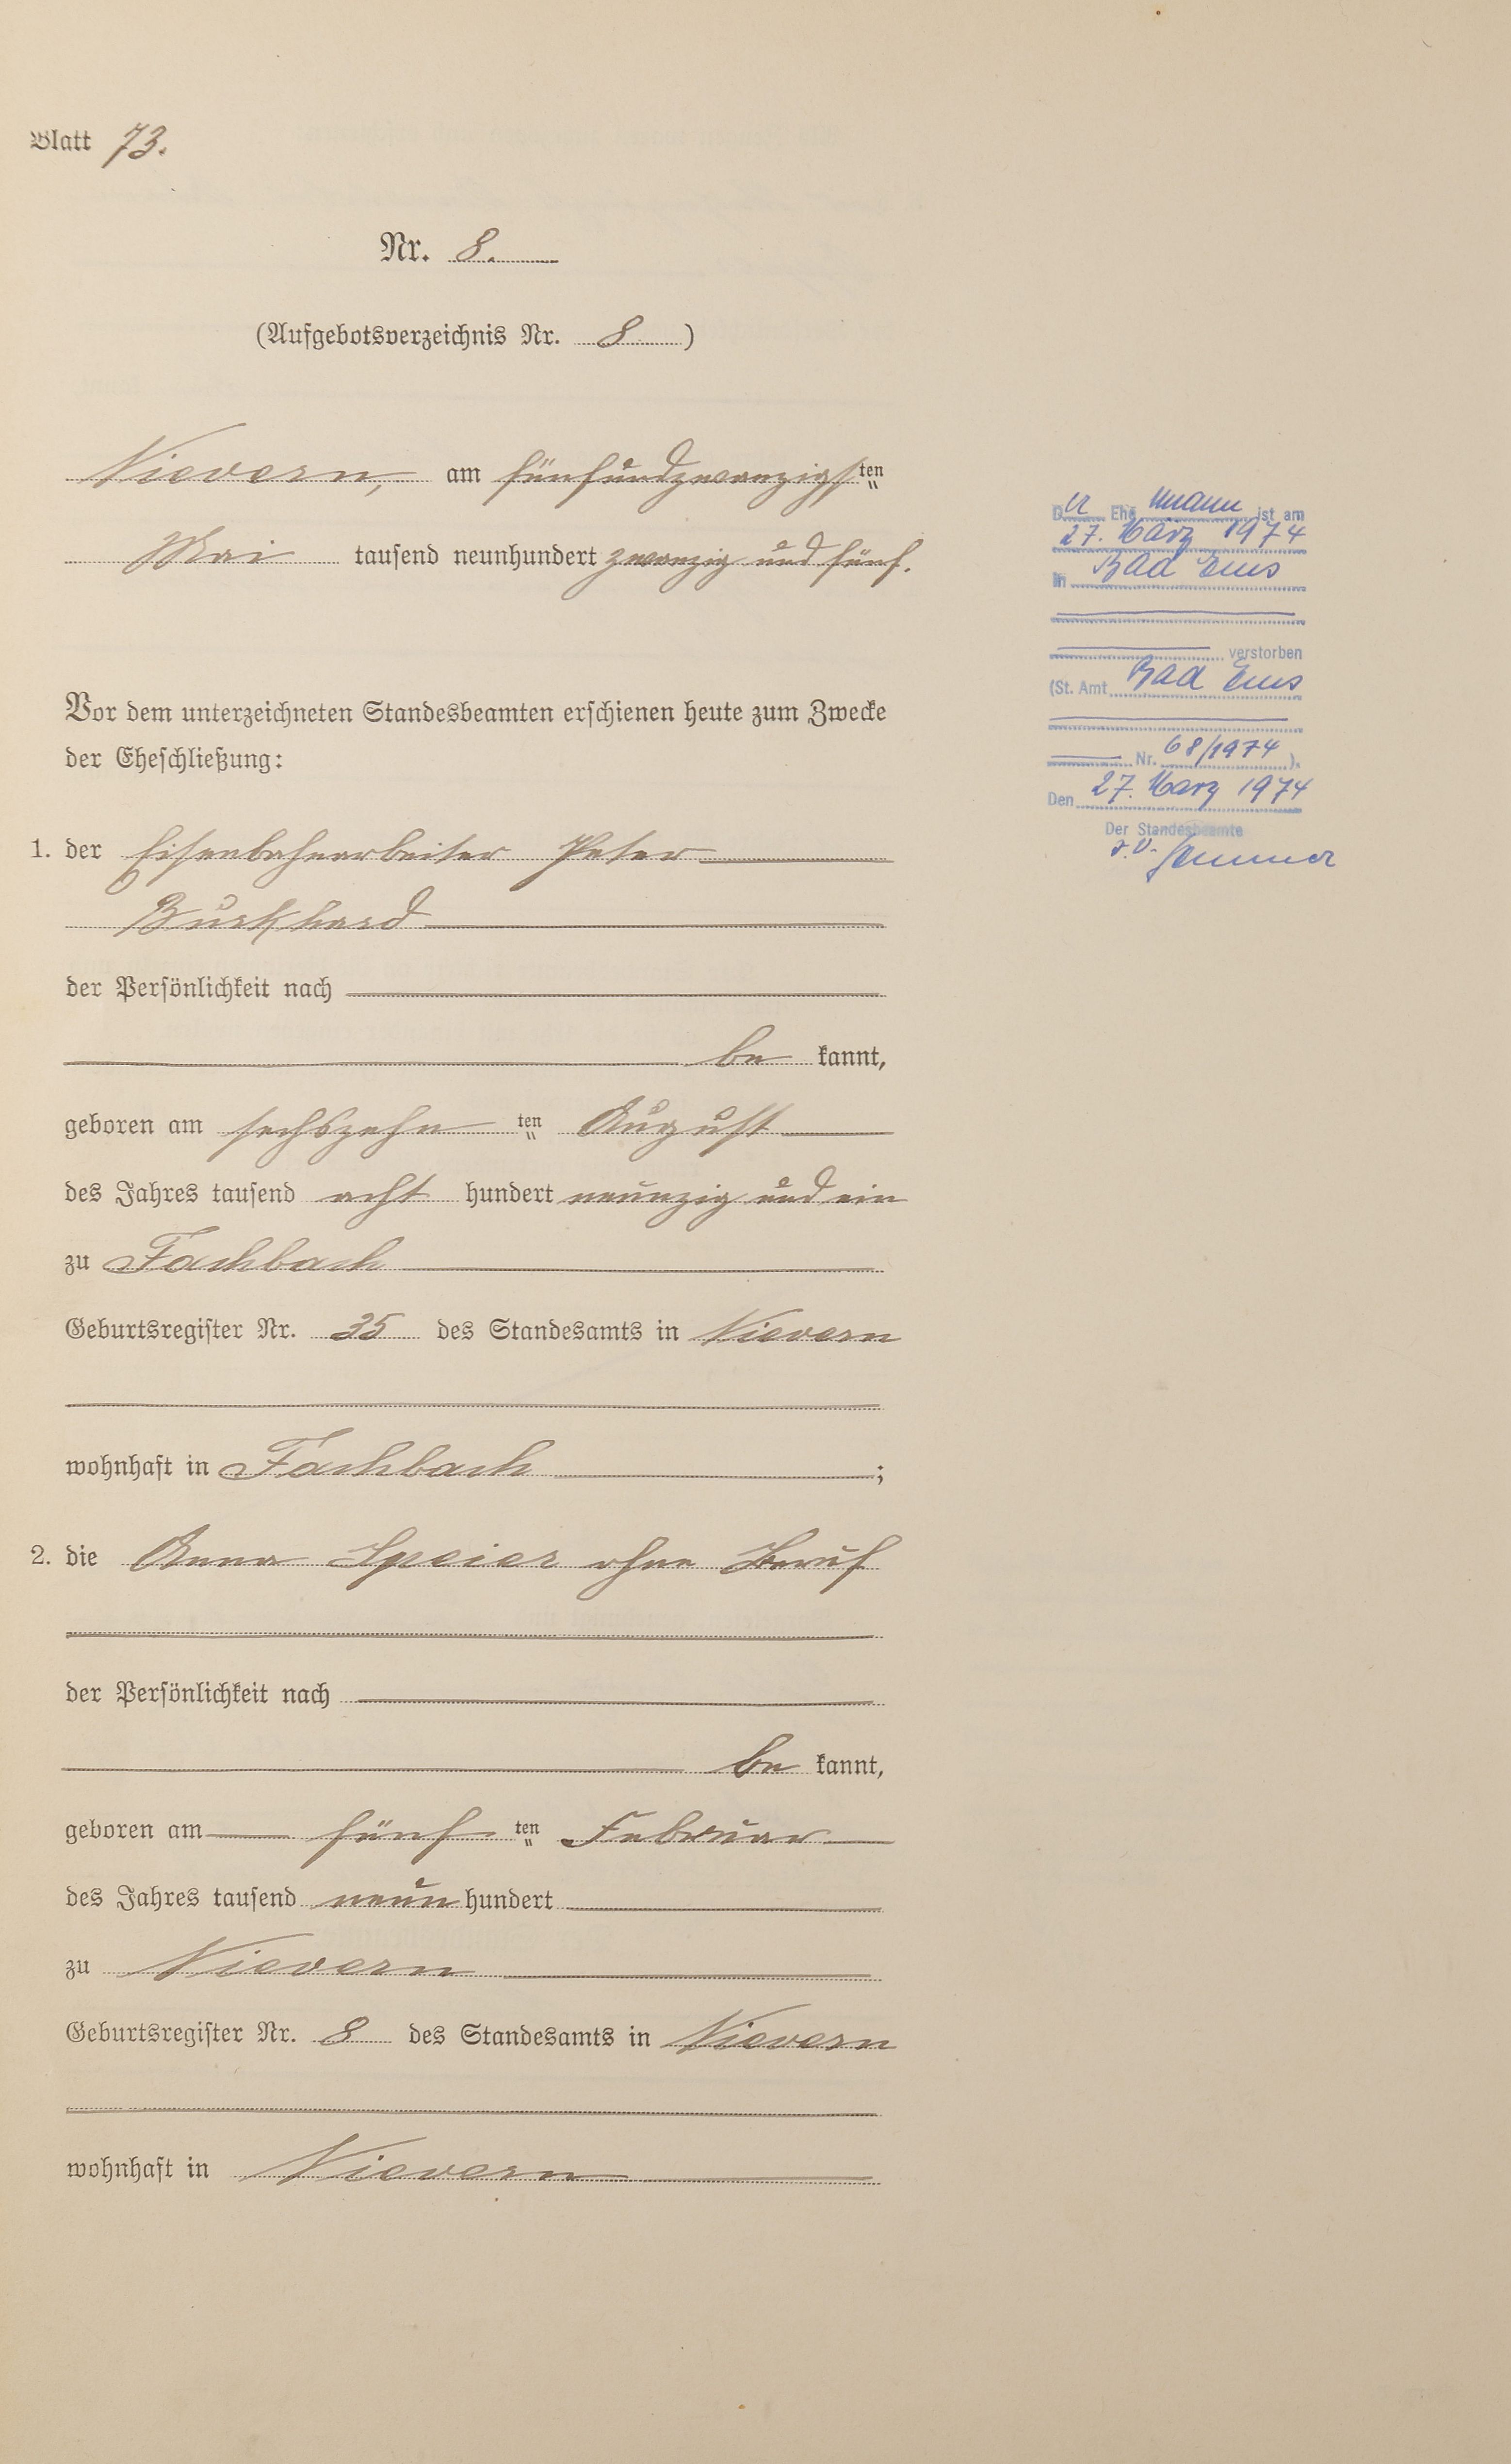 Blatt 73.
Nr. 8.
(Aufgebotsverzeichnis Nr. 8)
Nievern, am fünfundzwanzigsten
Mai tausend neunhundert zwanzig und fünf.
Vor dem unterzeichneten Standesbeamten erschienen heute zum Zwecke
der Eheschließung:
1. der Eisenbahnarbeiter Peter
Burkhard
der Persönlichkeit nach
be kannt,
geboren am sechszehn ten August
des Jahres tausend acht hundert neunzig und ein
zu Fachbach
Geburtsregister Nr. 35 des Standesamts in Nievern
wohnhaft in Fachbach ;
2. die Anna Speier ohne Beruf
der Persönlichkeit nach
be kannt,
geboren am fünf ten Februar
des Jahres tausend neun hundert
zu Nievern
Geburtsregister Nr. 8 des Standesamts in Nievern
wohnhaft in Nievern
Der Ehemann ist am
27. März 1974
in Bad Ems
verstorben
(St. Amt Bad Ems
Nr. 68/1974 ).
Den 27. März 1974
Der Standesbeamte